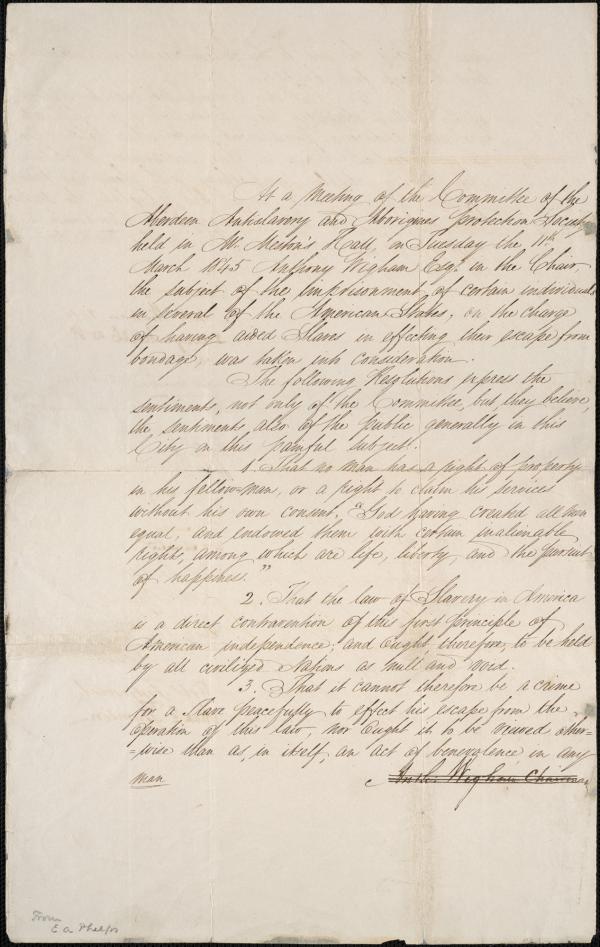 At a Meeting of the Committee of the
Aberdeen Antislavery and Aborigines protection Society
held in Mr. Meston's Hall, on Tuesday the 11th
March 1845 Anthony Wigham Esqr. in the Chair,
the subject of the imprisonment of certain individuals
in several of the American States, on the charge
of having aided Slaves in effecting their escape from
bondage, was taken into consideration.
The following Resolutions express the
sentiments, not only of the Committee, but, they believe,
the sentiments also of the public generally in this
City on this painful subject.
1. That no man has a right of property
in his fellow-man, or a right to claim his services
without his own consent, "God having created all men
equal, and endowed them with certain inalienable
rights, among which are life, liberty, and the pursuit
of happiness."
2. That the law of Slavery in America
is a direct contravention of this first principle of
American independence; and ought, therefore, to be held
by all civilized Nations as null and void.
3. That it cannot therefore be a crime
for a Slave peacefully to effect his escape from the
operation of this law, nor ought it to be viewed other-
-wise than as, in itself, an act of benevolence in any
man
Anth. Wigham Chairman
From
E A Phelps